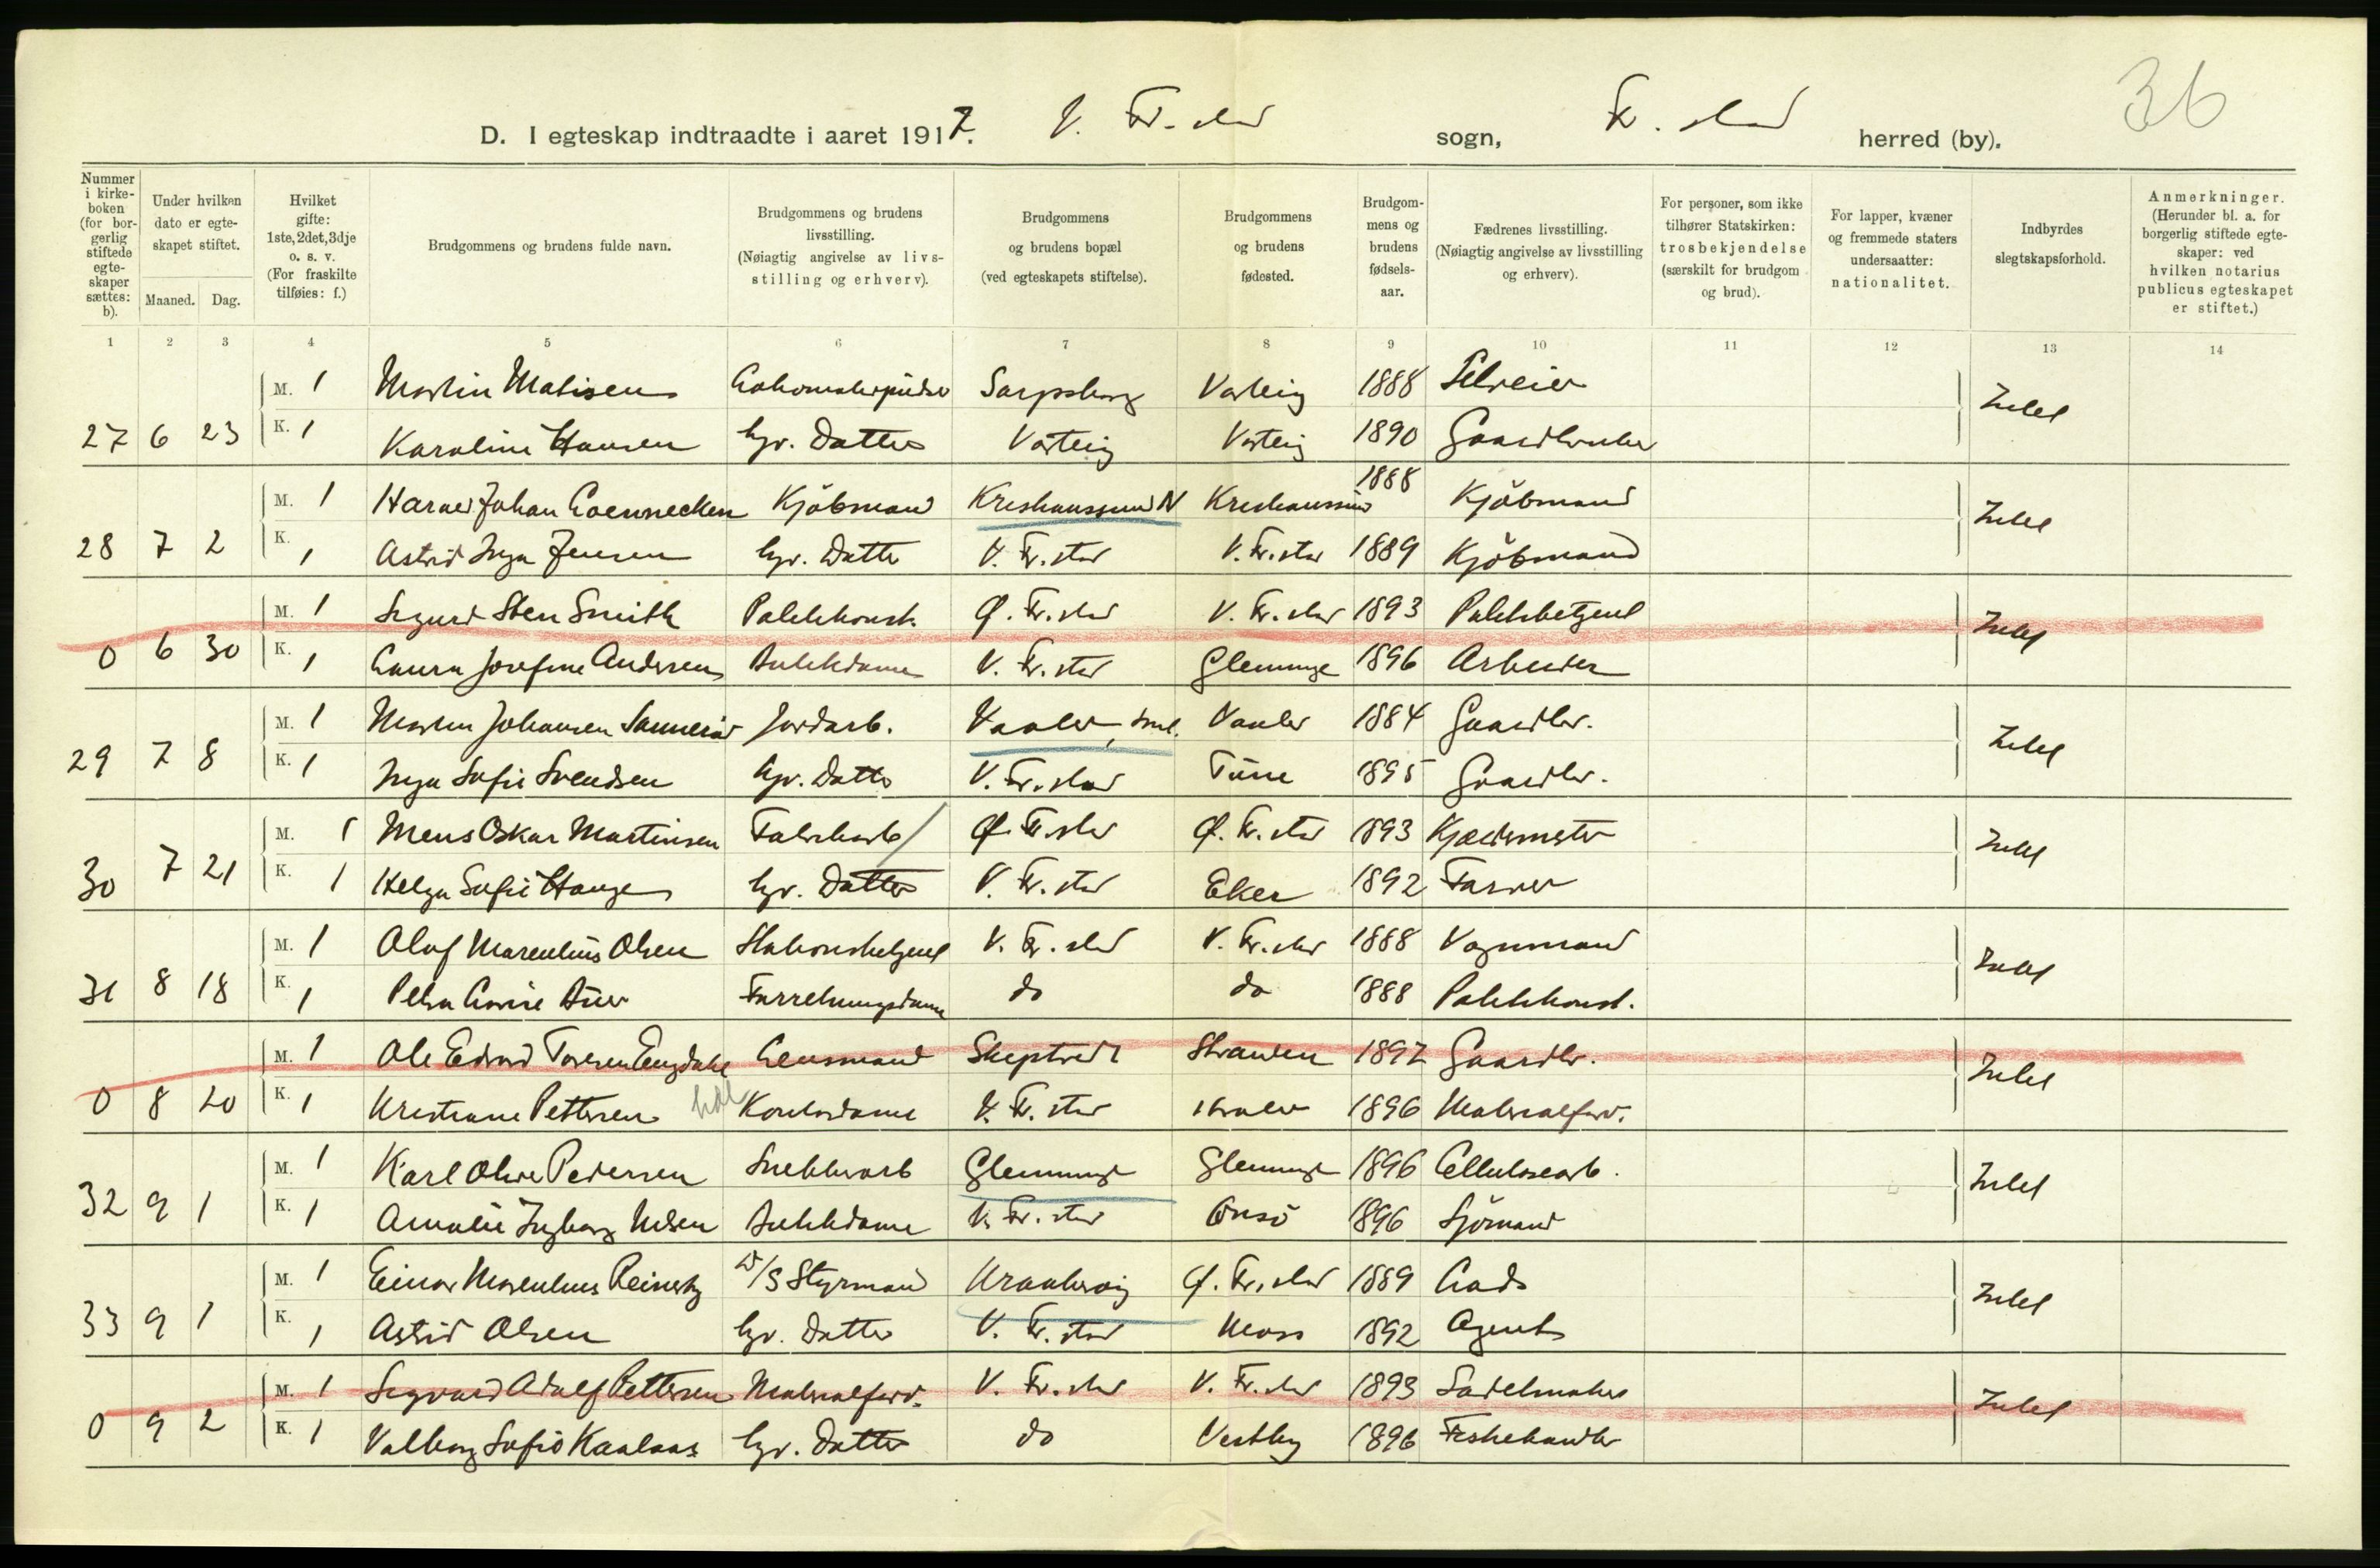 36
D. I egteskap indtraadte i aaret 1917. V. Fr.stad sogn, Fr.stad herred (by).
Nummer i kirke-boken (for bor-gerlig stiftede egte-skaper sættes: b).
Under hvilken dato er egte-skapet stiftet.
Maaned. Dag.
Hvilket gifte: 1ste, 2det, 3dje o. s. v. (For fraskilte tilføies: f.)
Brudgommens og brudens fulde navn.
Brudgommens og brudens livsstilling. (Nøiagtig angivelse av livs-stilling og erhverv).
Brudgommens og brudens bopæl (ved egteskapets stiftelse).
Brudgommens og brudens fødested.
Brudgom-mens og brudens fødsels-aar.
Fædrenes livsstilling. (Nøiagtig angivelse av livsstilling og erhverv).
For personer, som ikke tilhører Statskirken: trosbekjendelse (særskilt for brudgom og brud).
For lapper, kvæner og fremmede staters undersaatter: nationalitet.
Indbyrdes slegtskapsforhold.
Anmerkninger. (Herunder bl. a. for borgerlig stiftede egte-skaper: ved hvilken notarius publicus egteskapet er stiftet.)
1 2 3 4 5 6 7 8 9 10 11 12 13 14
M. 1 Martin Matisen Sarpsborg Varteig 1888 Selveier Intet
27 6 23 K. 1 Karoline Hansen hjv. Datter Varteig Varteig 1890 Gaardbruker
M. 1 Johan Coennecken Kjöbmand Kristianssund N Kristianssund 1888 Kjöbmand Intet
28 7 2 K. 1 Astrid Inga Jensen hjv. Datter V. Fr.stad V. Fr.stad 1889 Kjöbmand
M. 1 Sigurd Sten Smith Ø. Fr.stad V. Fr.stad 1893 Intet
0 6 30 K. 1 Laura Josefine Andersen Butikdame V. Fr.stad Glemminge 1896 Arbeider
M. 1 Martin Johansen Jordarb. Vaaler, Sml. Vaaler 1884 Gaardbr. Intet
29 7 8 K. 1 Inga Sofie Svendsen hjv. Datter V. Fr.stad Tune 1895 Gaardbr.
M. 1 Mens Oskar Martinsen Fabrikarb Ø. Fr.stad Ø. Fr.stad 1893 Intet
30 7 21 K. 1 Helga Sofie Hauge hjv. Datter V. Fr.stad Eker 1892 Farver
M. 1 Olaf Marentius Olsen Stationsbetjent V. Fr.stad V. Fr.stad 1888 Vognmand Intet
31 8 18 K. 1 Petra Forretningsdame do do 1888
M. 1 Ole Edvard Lensmand Skiptvedt Stranden 1892 Gaardbr. Intet
0 8 20 K. 1 Kristiane Pettersen Kontordame V. Fr.stad 1896 Materialforv.
M. 1 Karl Olav Pedersen Snekkerarb Glemminge Glemminge 1896 Cellulosearb. Intet
32 9 1 K. 1 Amalie Ingborg Nilsen Butikdame V. Fr.stad Onsö 1896 Sjömand
M. 1 Einar Marentius Reinertz D/S Styrmand Kraakerøy Ø. Fr.stad 1889 Lods Intet
33 9 1 K. 1 Astrid Olsen hjv. Datter V. Fr.stad Moss 1892 Agent
M. 1 Sigvard Adolf Pettersen Materialforv. V. Fr.stad V. Fr.stad 1893 Sadelmaker Intet
0 9 2 K. 1 Valborg Sofie Kaalaas hjv. Datter do Vestby 1896 Fiskehandler